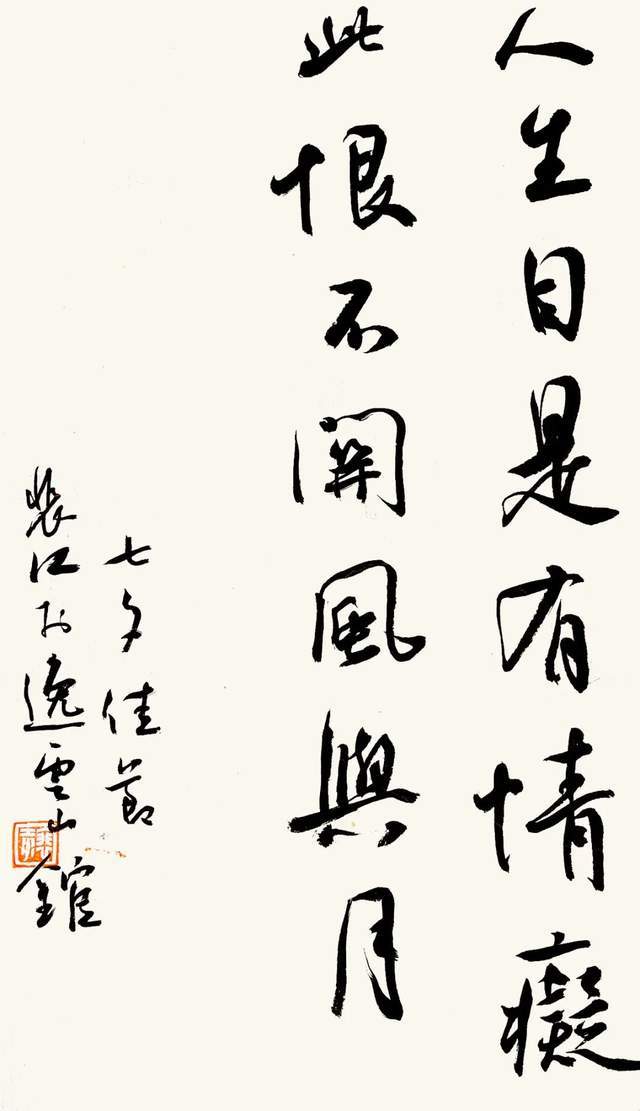 人生自是有情癡
此恨不關風與月
七夕佳節
裴江於逸雲山館